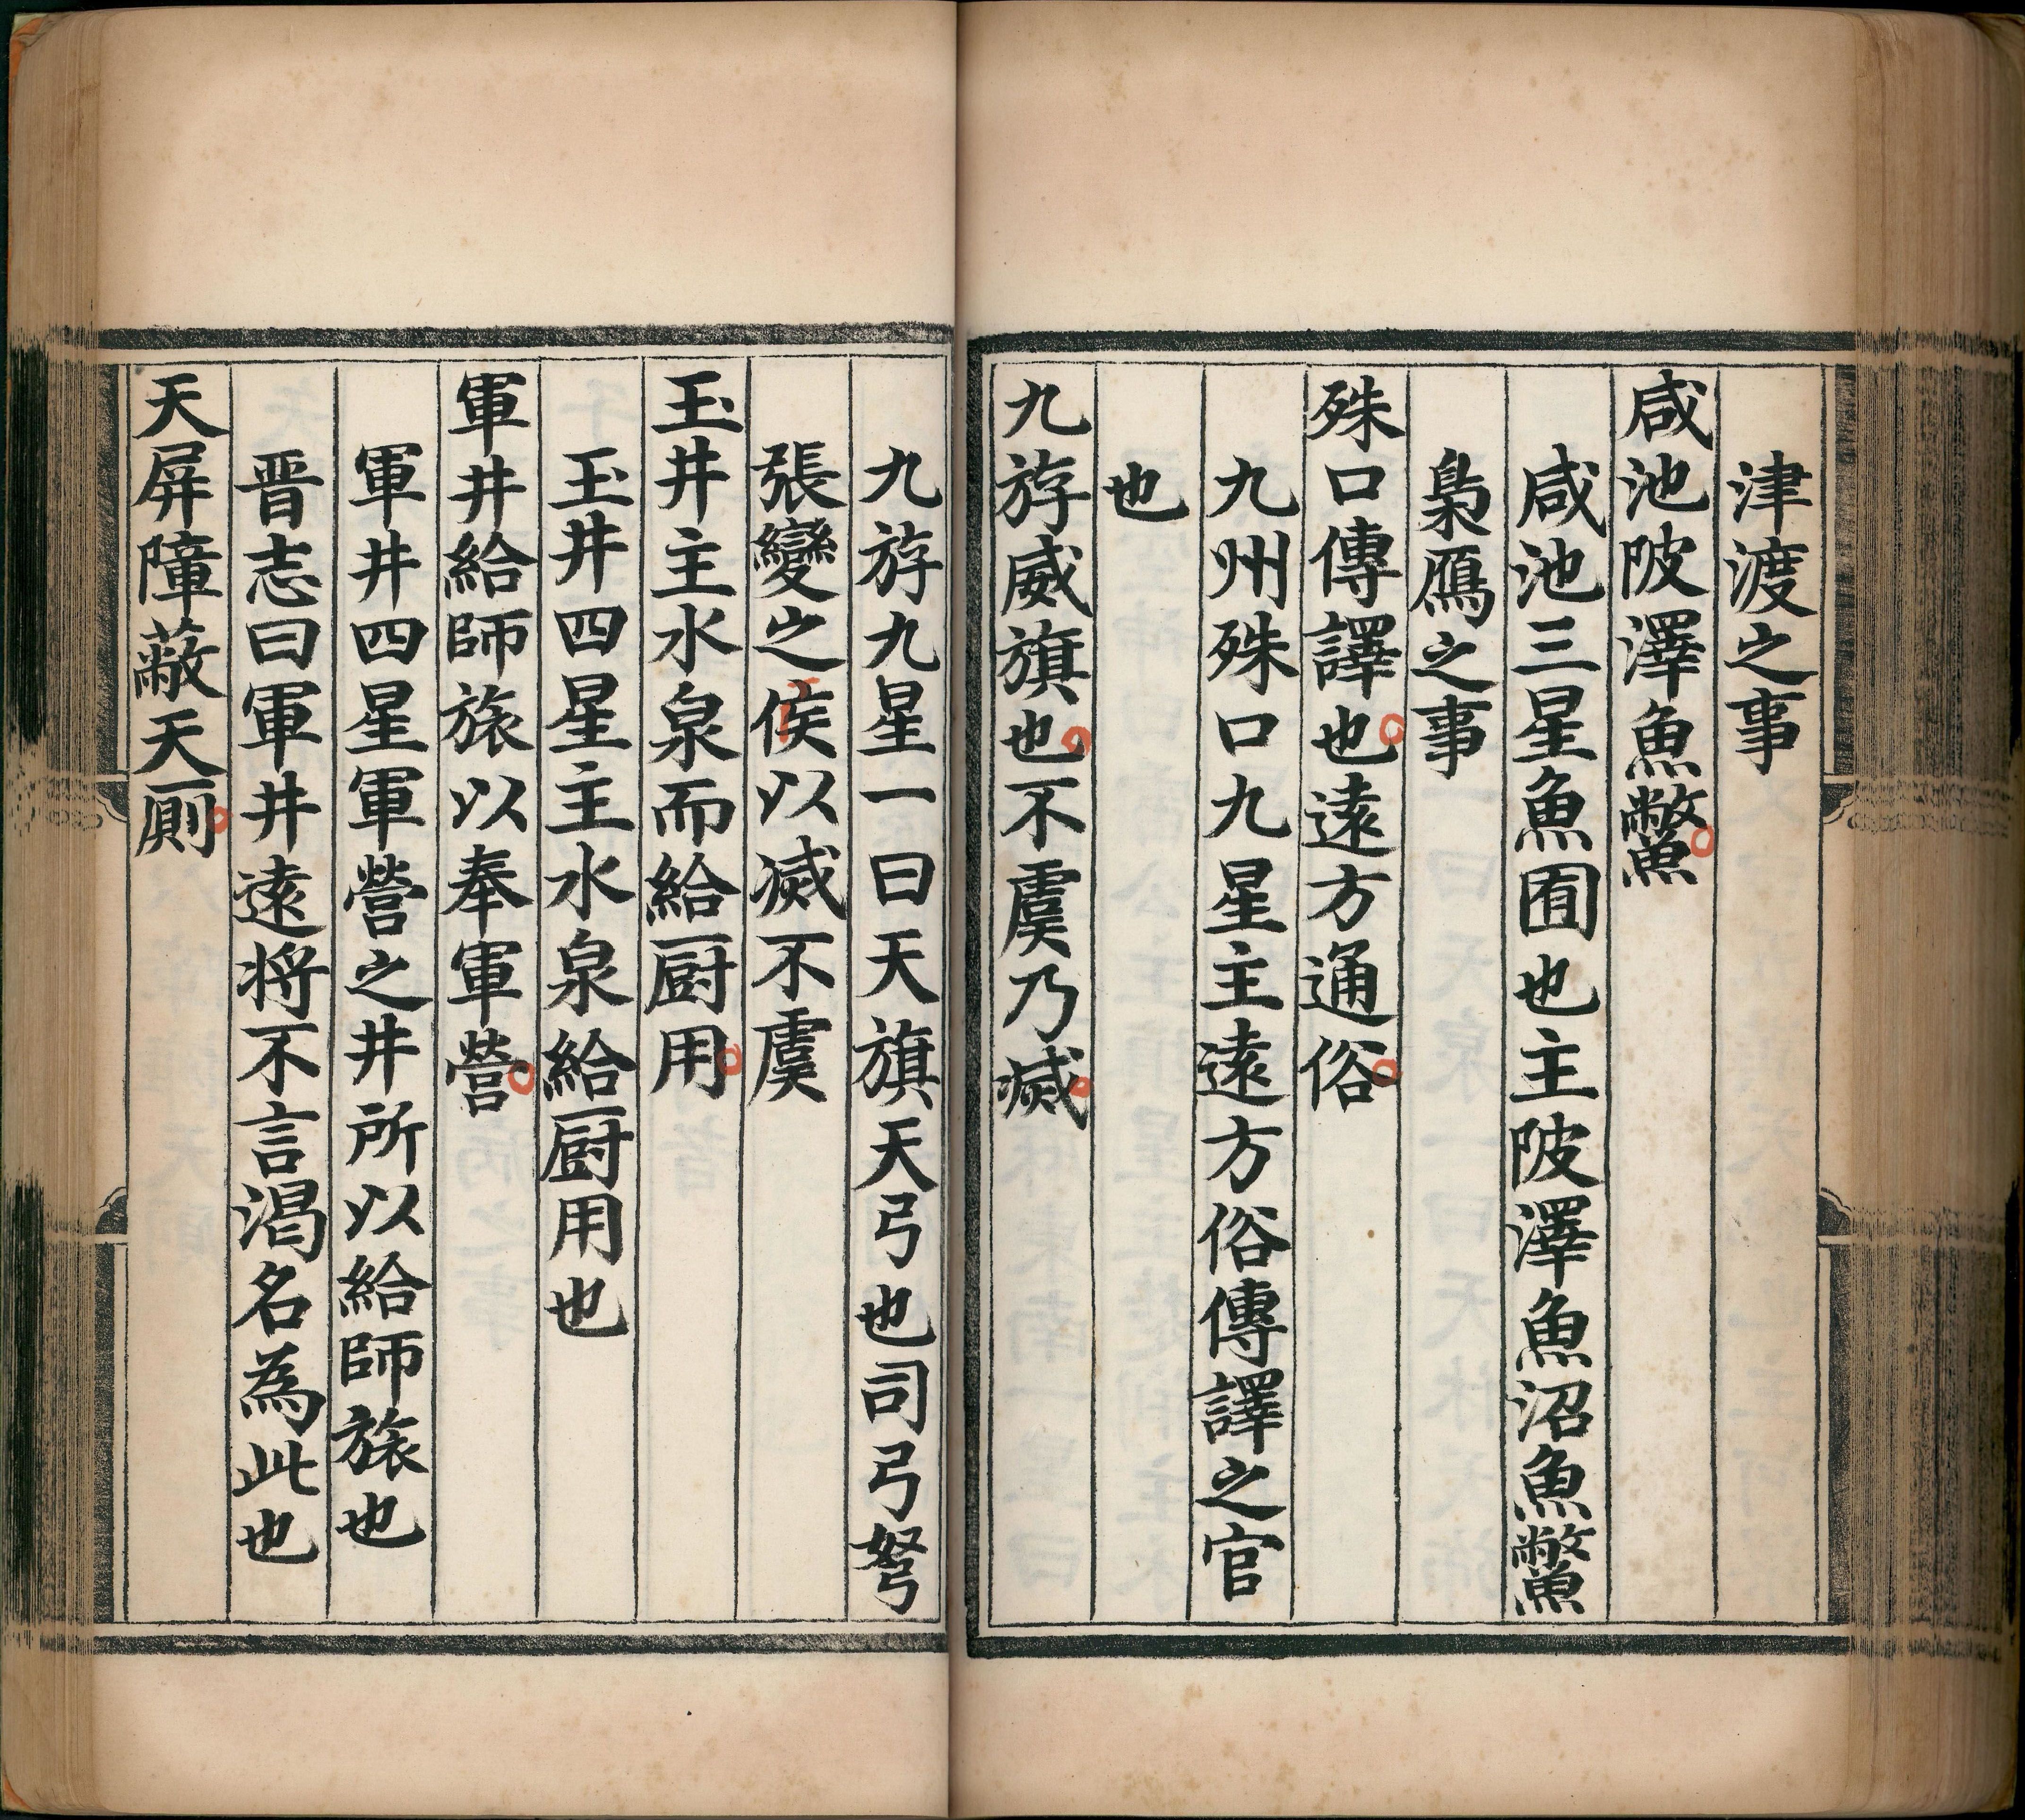 津渡之事
咸池陂澤魚鱉
咸池三星魚囿也主陂澤魚沼魚鱉
梟鴈之事
殊口傳譯也遠方通俗
九州殊口九星主遠方俗傳譯之官
也
九斿威旗也不虞乃滅
九斿九星一曰天旗天弓也司弓弩
張變之候以滅不虞
玉井主水泉而給厨用
玉井四星主水泉給厨用也
軍井給師旅以奉軍營
軍井四星軍營之井所以給師旅也
晋志曰軍井逺将不言渴名為此也
天屏障蔽天厠